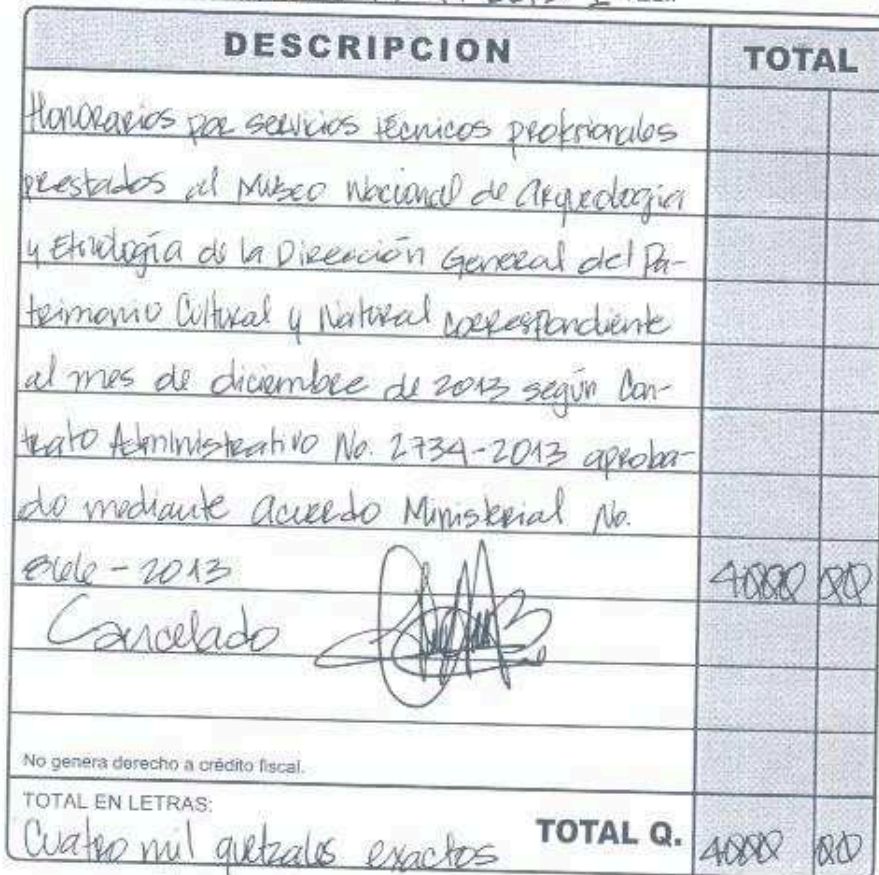 DESCRIPCION TOTAL
Honorarios por servicios técnicos profesionales
prestados al Museo Nacional de Arqueología
y Etnología de la Dirección General del Pa-
trimonio Cultural y Natural correspondiente
al mes de diciembre de 2013 según Con-
trato Administrativo No. 2734-2013 aproba-
do mediante acuerdo Ministerial No.
866-2013 4000 00
Cancelado
No genera derecho a crédito fiscal.
TOTAL EN LETRAS:
Cuatro mil quetzales exactos TOTAL Q. 4000 00